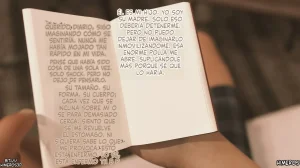 QUERIDO DIARIO, SIGO
IMAGINANDO CÓMO SE
SENTIRÍA. NUNCA ME
HABÍA MOJADO TAN
RÁPIDO EN MI VIDA.
PENSÉ QUE HABÍA SIDO
COSA DE UNA SOLA VEZ.
SOLO SHOCK. PERO NO
DEJO DE PENSARLO.
SU TAMAÑO. SU
FORMA. SU CUERPO.
CADA VEZ QUE SE
INCLINA SOBRE MI O
SE PARA DEMASIADO
CERCA, SIENTO QUE
SE ME REVUELVE
EL ESTÓMAGO. NI
SIQUIERA SABE LO QUE
ÉL ES MI HIJO. YO SOY
SU MADRE. SOLO ESO
DEBERÍA DETENERME.
PERO NO PUEDO
DEJAR DE IMAGINARLO
INMOVILIZÁNDOME. ESA
ENORME POLLA ME
ABRE. SUPLICÁNDOLE
MÁS PORQUE SÉ QUE
LO HARÍA